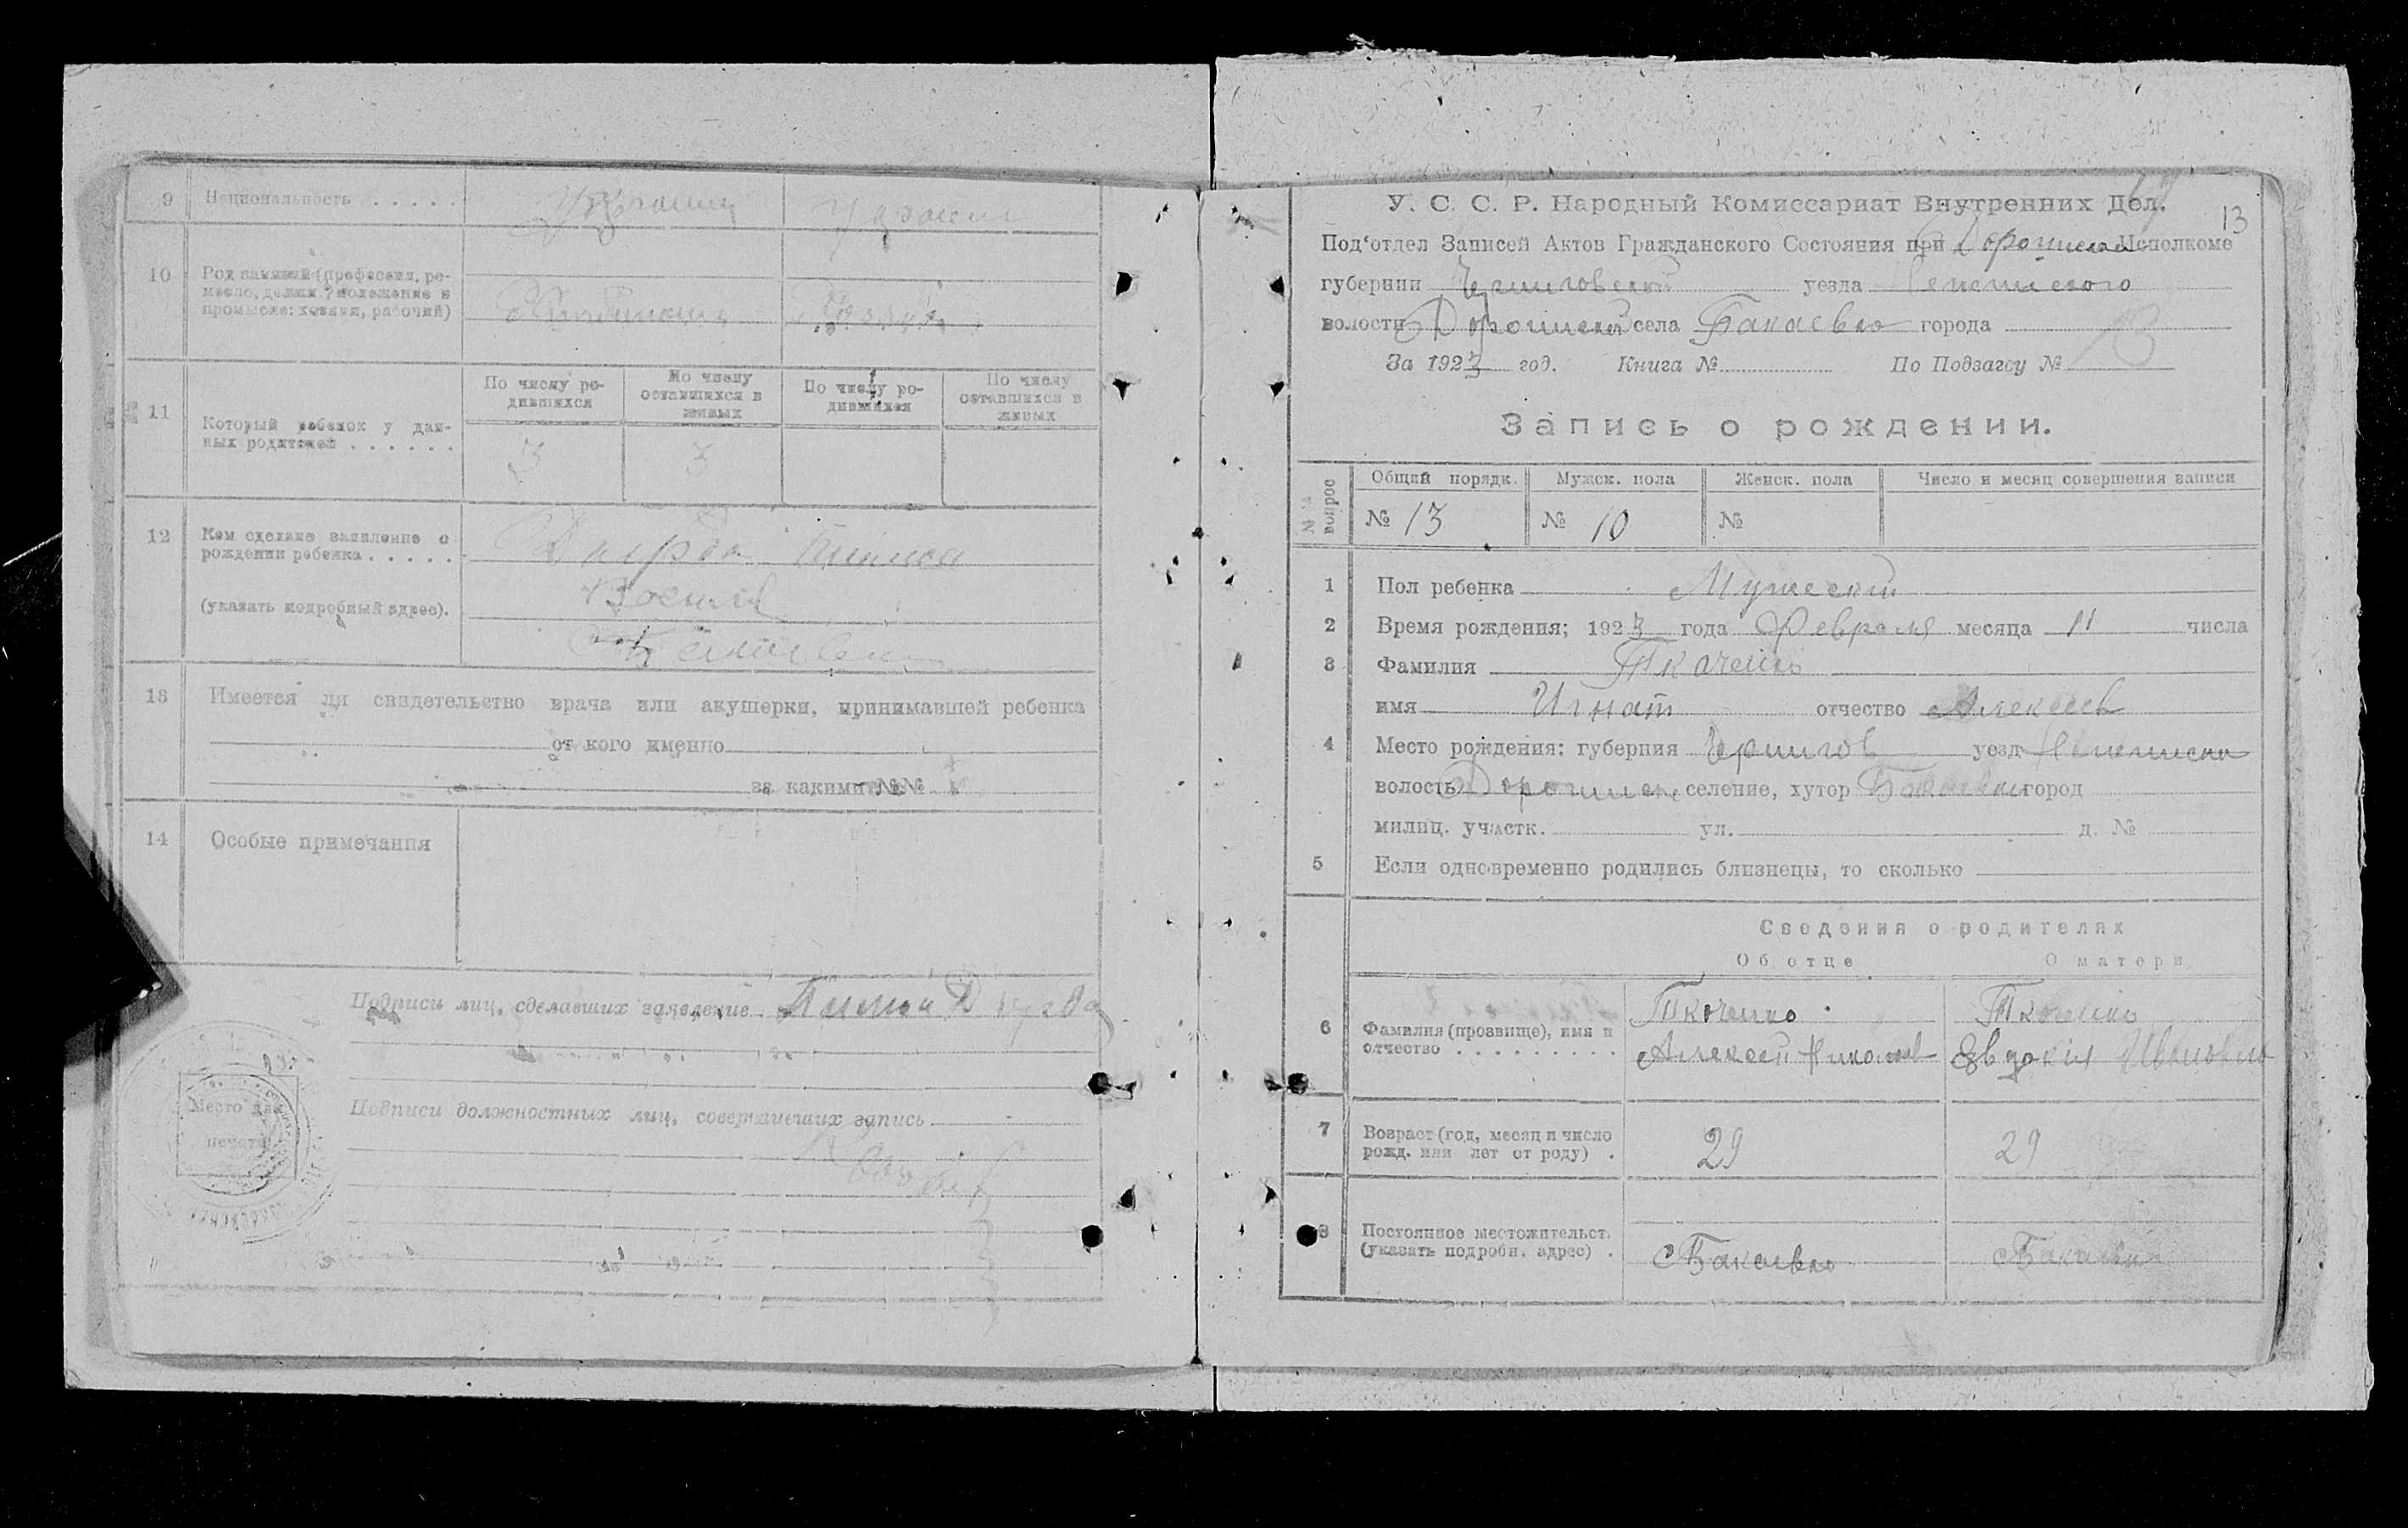 9 Национальность . . . . . Украинец
10 Род занятий (профессия, ре-
месло, должн. положение в
промысле: хозяин, рабочий)
11 Который ребенок у дан-
ных родителей . . . . . .
По числу ро-
дившихся
По числу
оставшихся в
живых
По числу ро-
дившихся
По числу
оставшихся в
живых
3 3
12 Кем сделано заявление о
рождении ребенка . . . . .
(указать подробный адрес).
13 Имеется ли свидетельство врача или акушерки, принимавшей ребенка
от кого именно
за какими №№
14 Особые примечания
Подписи лиц, сделавших заявление
Место для
печати
Подписи должностных лиц, совершивших запись
13
У. С. С. Р. Народный Комиссариат Внутренних Дел.
Под'отдел Записей Актов Гражданского Состояния при Исполкоме
губернии Черниговской уезда
волости села Бакаевка города
За 1923 год. Книга № По Подзагсу № 13
Запись о рождении.
№№ вопрос
Общий порядк. Мужск. пола Женск. пола Число и месяц совершения записи
№ 13 № 10 №
1 Пол ребенка Мужеский
2 Время рождения; 1923 года Февраля месяца 11 числа
3 Фамилия Ткаченко
имя Игнат отчество Алексеев
4 Место рождения: губерния Чернигов уезд
волость селение, хутор Бакаевка город
милиц. участк. ул. д. №
5 Если одновременно родились близнецы, то сколько
Сведения о родителях
Об отце О матери
6 Фамилия (прозвище), имя и
отчество . . . . . . . . .
Ткаченко
Алексей Николаев
Ткаченко
Евдокия Ивановна
7 Возраст (год, месяц и число
рожд. или лет от роду) .
29 29
8 Постоянное местожительст.
(указать подробн. адрес) .
Бакаевка Бакаевка